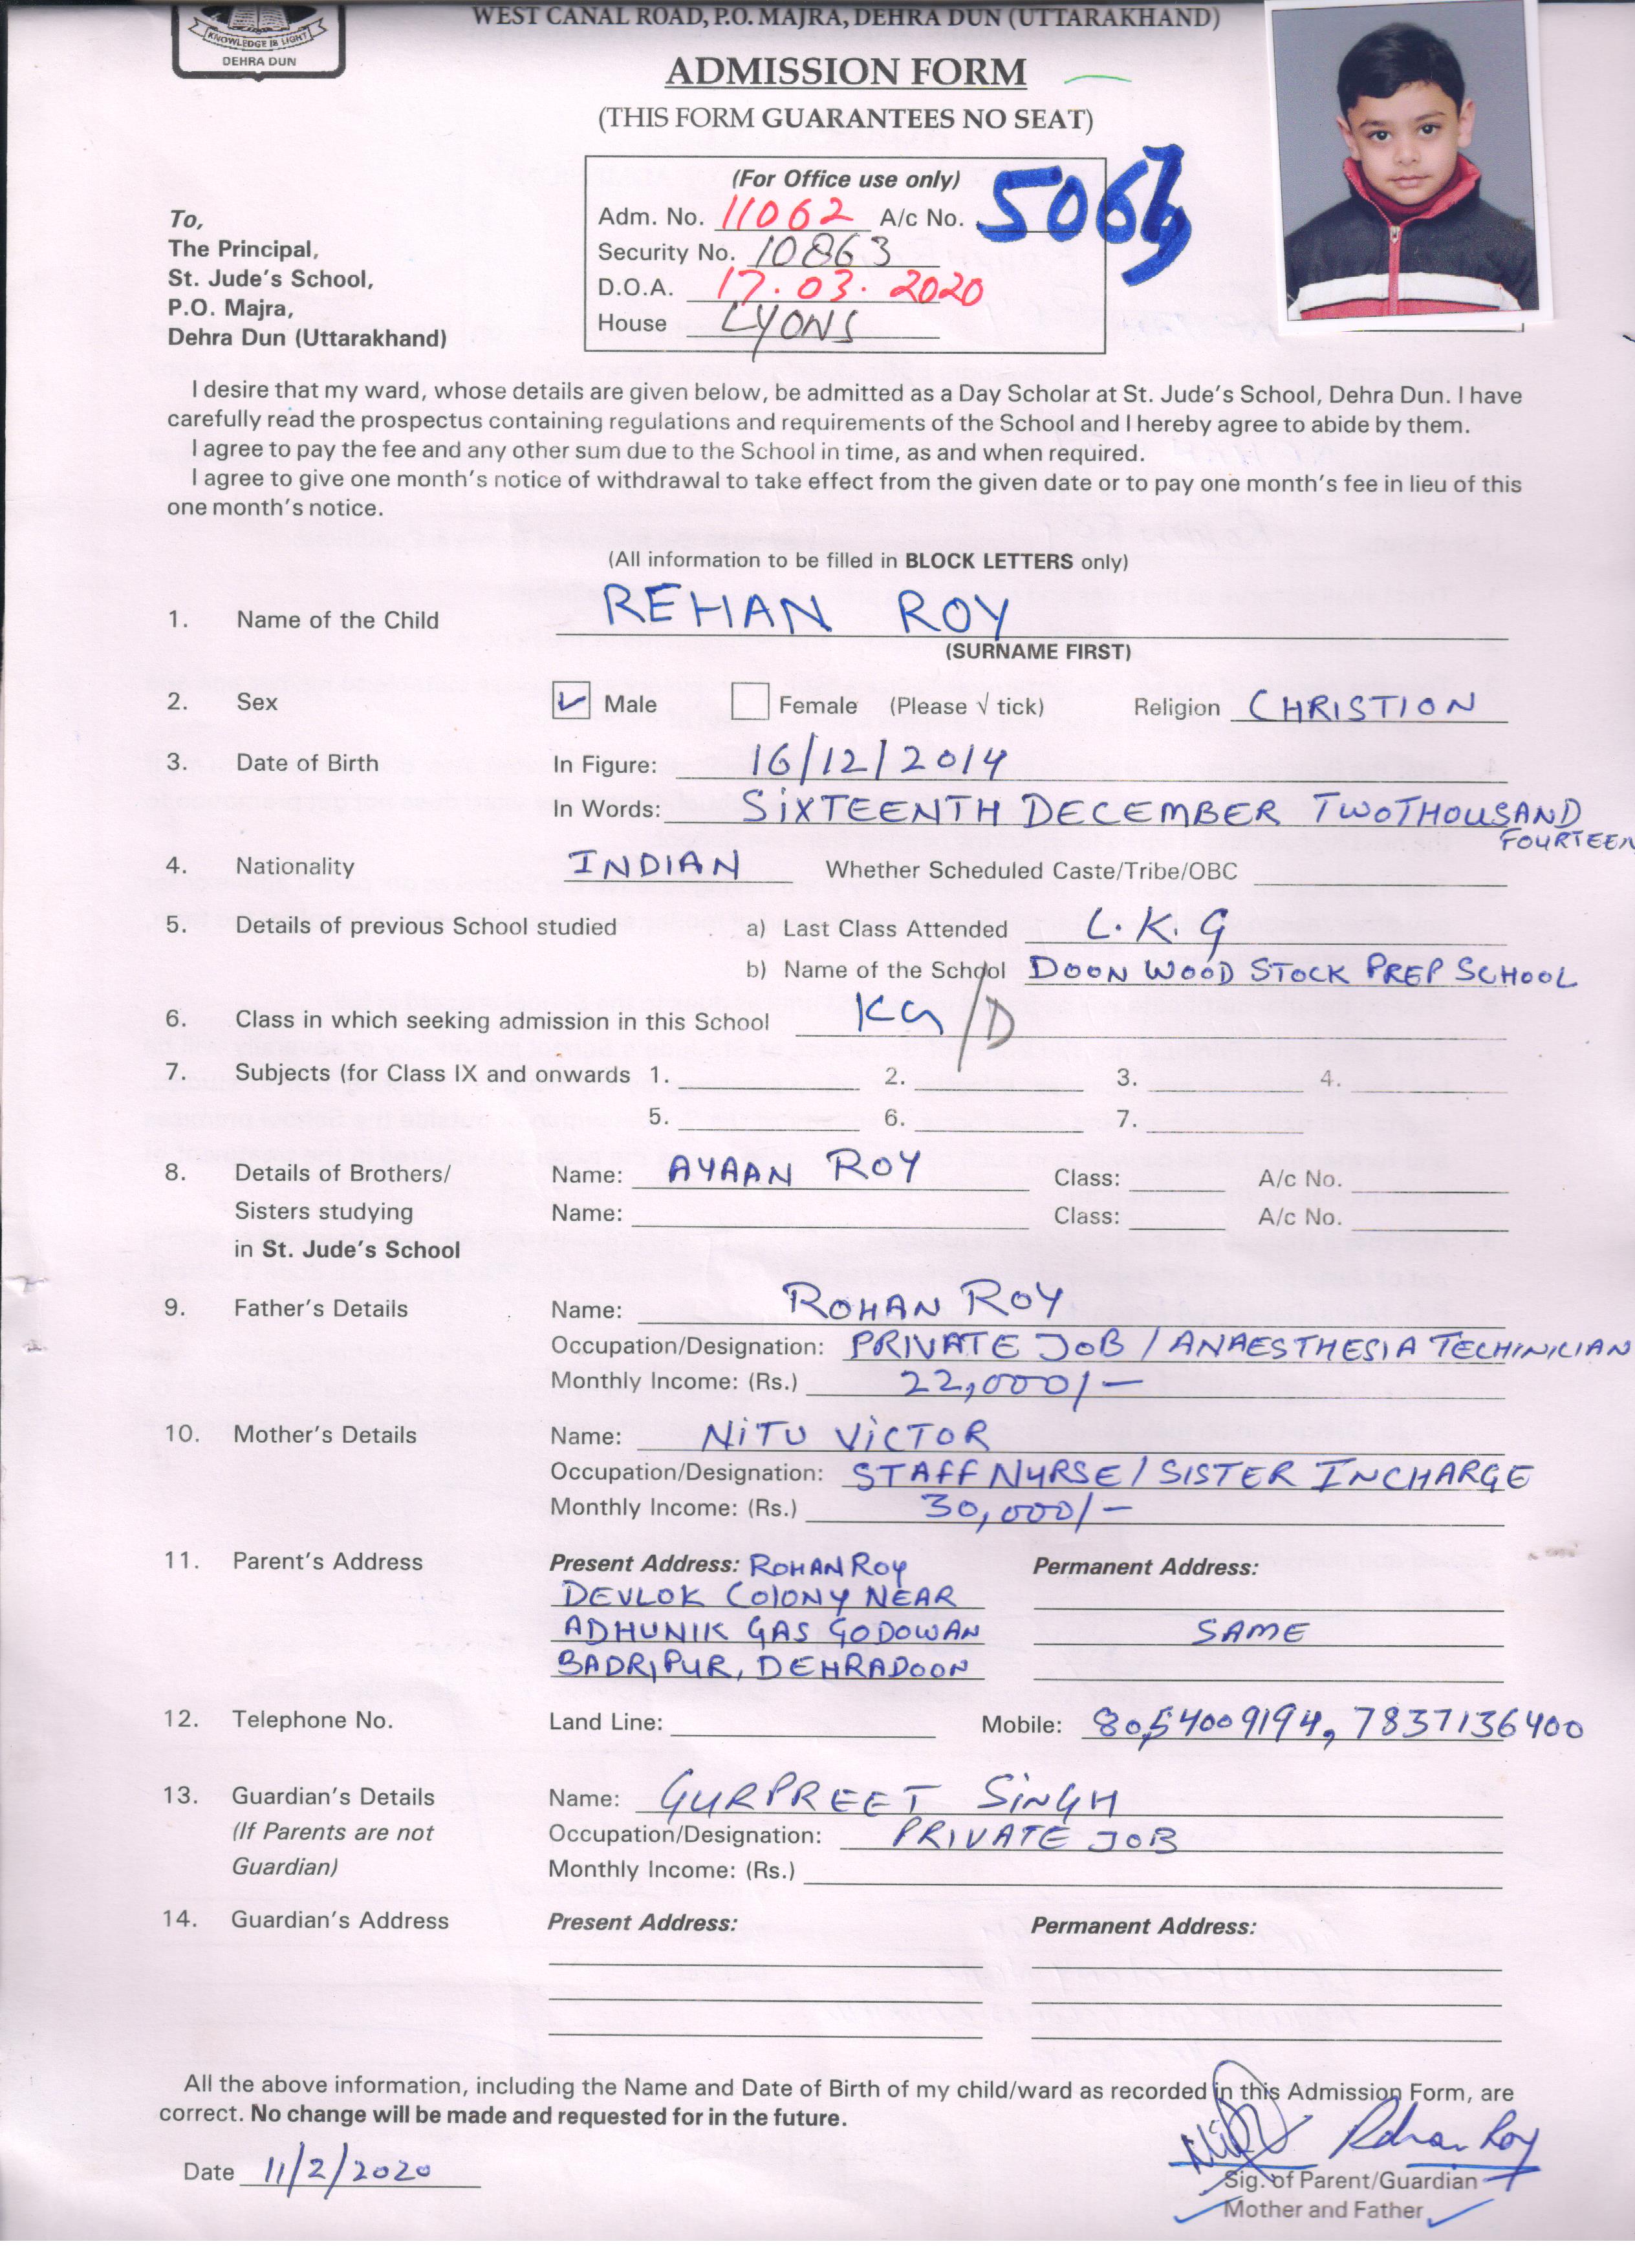 WEST CANAL ROAD, P.O. MAJRA, DEHRA DUN (UTTARAKHAND)
KNOWLEDGE IS LIGHT
DEHRA DUN
ADMISSION FORM
(THIS FORM GUARANTEES NO SEAT)
(For Office use only)
Adm. No. 11062 A/c No.
Security No. 10863
D.O.A. 17.03.2020
House LYONS
To,
The Principal,
St. Jude's School,
P.O. Majra,
Dehra Dun (Uttarakhand)
I desire that my ward, whose details are given below, be admitted as a Day Scholar at St. Jude's School, Dehra Dun. I have
carefully read the prospectus containing regulations and requirements of the School and I hereby agree to abide by them.
I agree to pay the fee and any other sum due to the School in time, as and when required.
I agree to give one month's notice of withdrawal to take effect from the given date or to pay one month's fee in lieu of this
one month's notice.
(All information to be filled in BLOCK LETTERS only)
1. Name of the Child REHAN ROY
(SURNAME FIRST)
2. Sex Male Female (Please √ tick) Religion CHRISTION
3. Date of Birth In Figure: 16/12/2014
In Words: SIXTEENTH DECEMBER TWOTHOUSAND
FOURTEEN
4. Nationality INDIAN Whether Scheduled Caste/Tribe/OBC
5. Details of previous School studied a) Last Class Attended L.K.G
b) Name of the School DOON WOOD STOCK PREP SCHOOL
6. Class in which seeking admission in this School KG/D
7. Subjects (for Class IX and onwards 1. 2. 3. 4.
5. 6. 7.
8. Details of Brothers/ Name: AYAAN ROY Class: A/c No.
Sisters studying Name: Class: A/c No.
in St. Jude's School
9. Father's Details Name: ROHAN ROY
Occupation/Designation: PRIVATE JOB / ANAESTHESIA TECHINICIAN
Monthly Income: (Rs.) 22,000/-
10. Mother's Details Name: NITU VICTOR
Occupation/Designation: STAFF NURSE / SISTER INCHARGE
Monthly Income: (Rs.) 30,000/-
11. Parent's Address Present Address: ROHAN ROY Permanent Address:
DEVLOK COLONY NEAR
ADHUNIK GAS GODOWAN SAME
BADRIPUR, DEHRADOON
12. Telephone No. Land Line: Mobile: 8054009194, 7837136400
13. Guardian's Details Name: GURPREET SINGH
(If Parents are not Occupation/Designation: PRIVATE JOB
Guardian) Monthly Income: (Rs.)
14. Guardian's Address Present Address: Permanent Address:
All the above information, including the Name and Date of Birth of my child/ward as recorded in this Admission Form, are
correct. No change will be made and requested for in the future.
Rohan Roy
Date 11/2/2020
Sig. of Parent/Guardian
Mother and Father